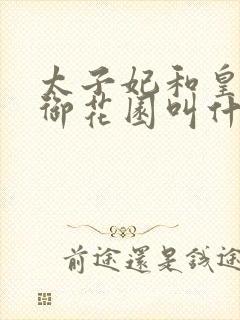 太子妃和皇
御花园叫什
前途還是錢途